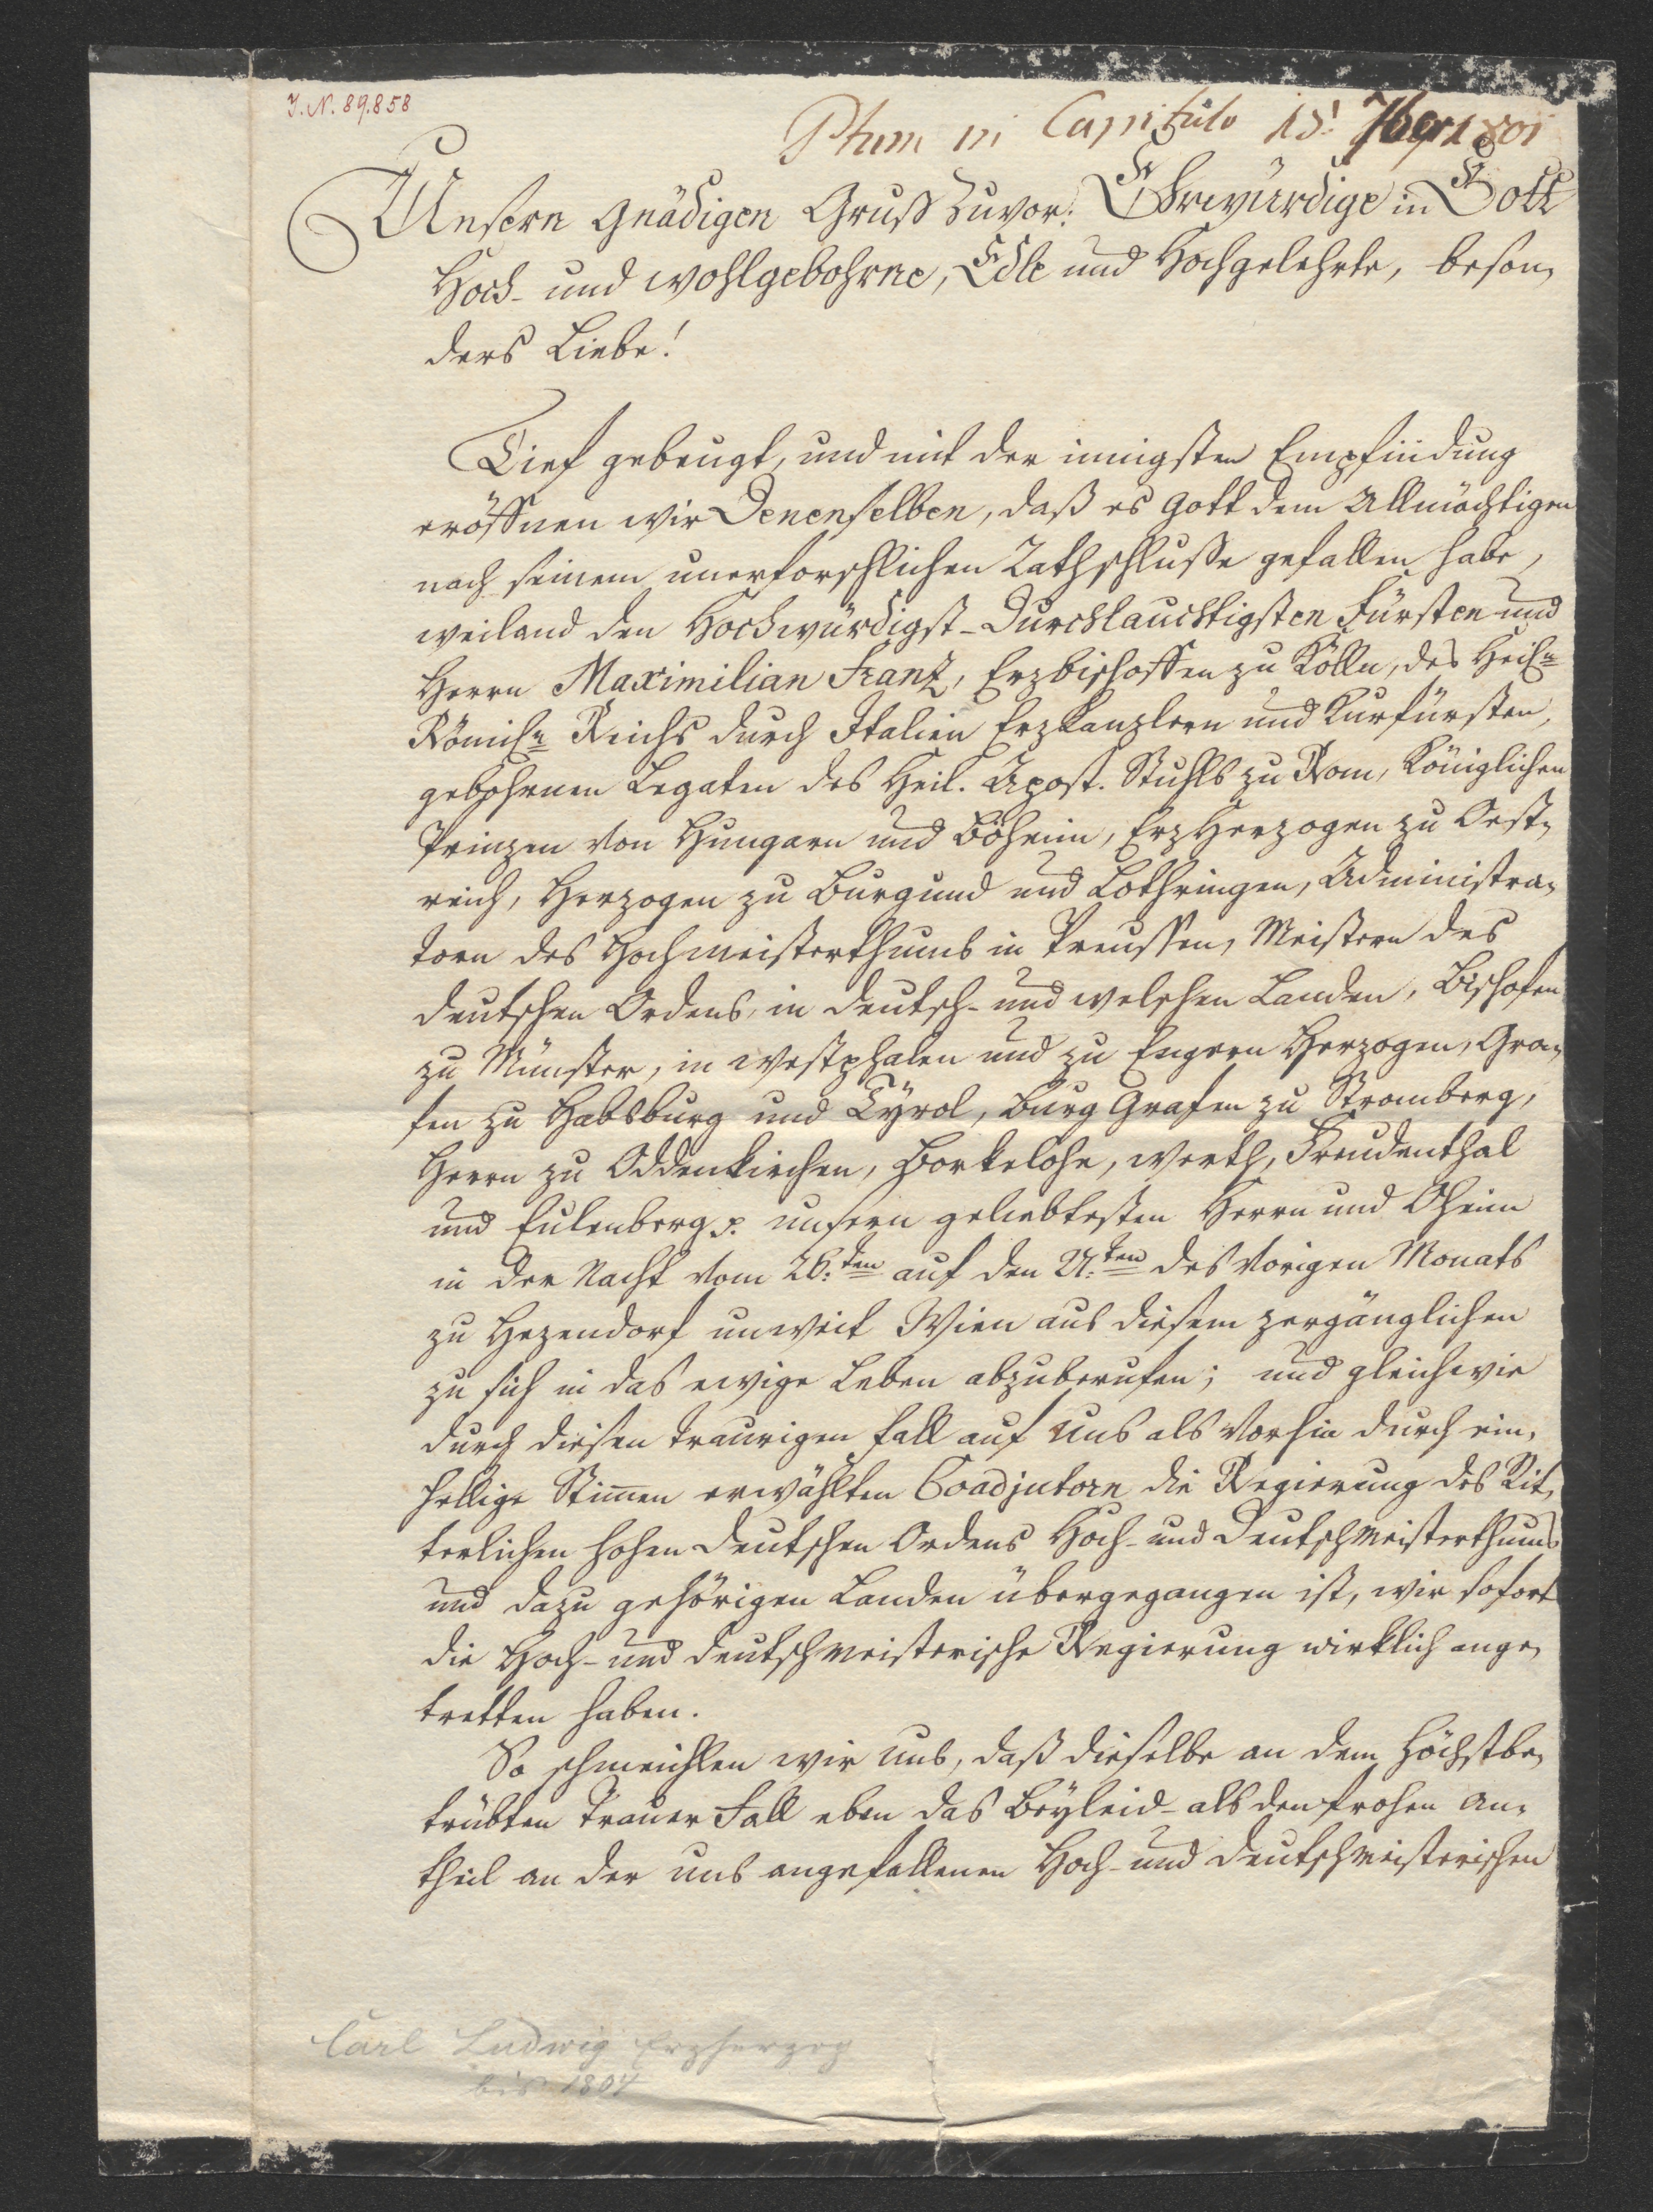 I.N. 89.858
Ptum in Capitulo 15! 7ber 1801
Unsern Gnädigen Gruß Zuvor: Ehrwürdige in Gott
Hoch- und wohlgebohrne, Edle und Hochgelehrte, beson„
ders Liebe!
Tief gebeugt, und mit der innigsten Empfindung
eröffnen wir Denenselben, daß es Gott dem Allmächtigen
nach seinem unerforschlichen Rathschlusse gefallen habe,
weiland den Hochwürdigst-Durchlauchtigsten Fürsten und
Herrn Maximilian Franz, Erzbischoffen zu Kölln, des Heiln
Römischn Reichs durch Italien Erzkanzlern und Kurfürsten,
gebohrnen Legaten des Heil. Apost. Stuhls zu Rom, Königlichen
Prinzen von Hungarn und Böheim, Erz Herzogen zu Oest„
reich, Herzogen zu Burgund und Lothringen, Administra„
torn des Hochmeisterthums in Preussen, Meistern des
deutschen Ordens in deutsch- und welschen Landen, Bischofen
zu Münster, in Westphalen und zu Engern Herzogen, Gra„
fen zu Habsburg und Tyrol, Burg Grafen zu Stromberg,
Herrn zu Oddenkirchen, Borkelohe, Werth, Freudenthal
und Eulenberg p. unsern geliebtesten Herrn und Oheim
in der Nacht vom 26:ten auf den 27:ten des vorigen Monats
zu Hezendorf unweit Wien aus diesem zergänglichen
zu sich in das ewige Leben abzuberufen; und gleichwie
durch diesen traurigen Fall auf Uns als vorhin durch ein„
hellige Stimmen erwählten Coadjutorn die Regierung des Rit„
terlichen hohen deutschen Ordens Hoch- und Deutschmeisterthums
und dazu gehörigen Landen übergegangen ist, wir sofort
die Hoch- und deutschmeisterische Regierung wirklich ange„
tretten haben.
So schmeichlen wir Uns, daß dieselbe an dem Höchstbe„
trübten Trauer Fall eben das Beyleid- als den frohen An„
theil an der uns angefallenen Hoch- und deutschmeisterischen
Carl Ludwig Erzherzog
bis 1804